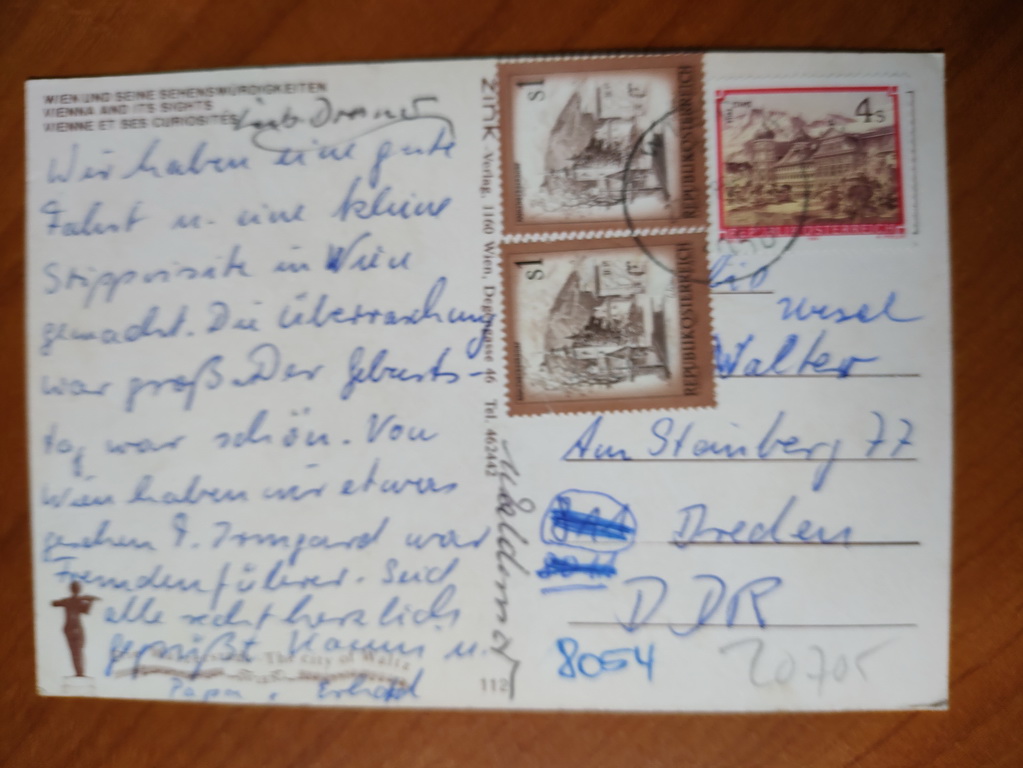 WIEN UND SEINE SEHENSWÜRDIGKEITEN
VIENNA AND ITS SIGHTS
VIENNE ET SES CURIOSITÉS
Wir haben eine gute
Fahrt u. eine kleine
Stippvisite in Wien
gemacht. Die Überraschung
war groß. Der Geburts-
tag war schön. Von
Wien haben wir etwas
gesehen Irmgard war
Fremdenführer. Seid
alle recht herzlich
gegrüßt u.
Papa
The City of Waltz
zink Verlag, 1160 Wien, 46 Tel. 462442
112
S1
REPUBLIK ÖSTERREICH
S1
REPUBLIK ÖSTERREICH
4s
REPUBLIK ÖSTERREICH
Wesel
Walter
Am Steinberg 77
Dreden
DDR
8054
20705